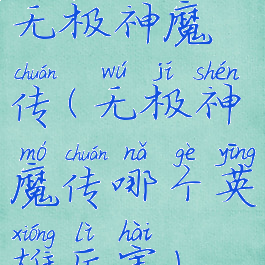 无极神魔
chuán wú jí shén
传(无极神
mó chuán nǎ gè yīng
魔传哪个英
xióng lì hài
雄厉害)